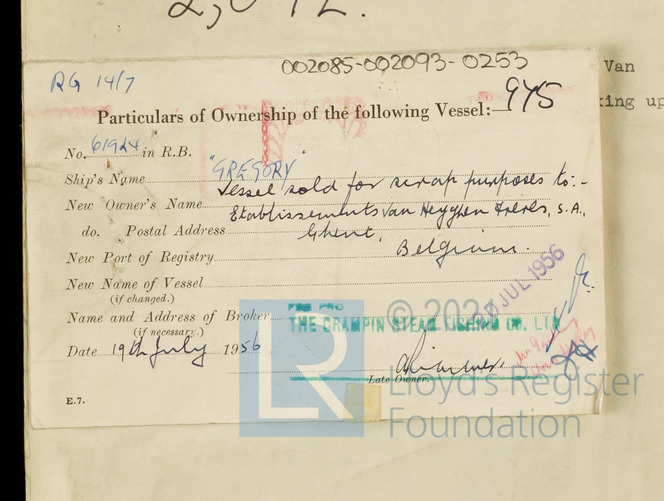 2,092.
002085-002093-0253
Van
RG 14/7
king up
Particulars of Ownership of the following Vessel:- 975
No. 61924 in R.B.
Ship's Name "GREGORY"
Vessel sold for scrap purposes to:-
New Owner's Name Etablissements Van Heyghen Freres, S.A.,
do. Postal Address Ghent,
New Port of Registry Belgium.
New Name of Vessel
(if changed.)
20 JUL 1956
Name and Address of Broker
(if necessary.)
FOR PRO
THE CRAMPIN STEAM FISHING CO. LTD
Date 19th July 1956
Late Owner.
E.7.
© 202
LR
Lloyd's Register
Foundation